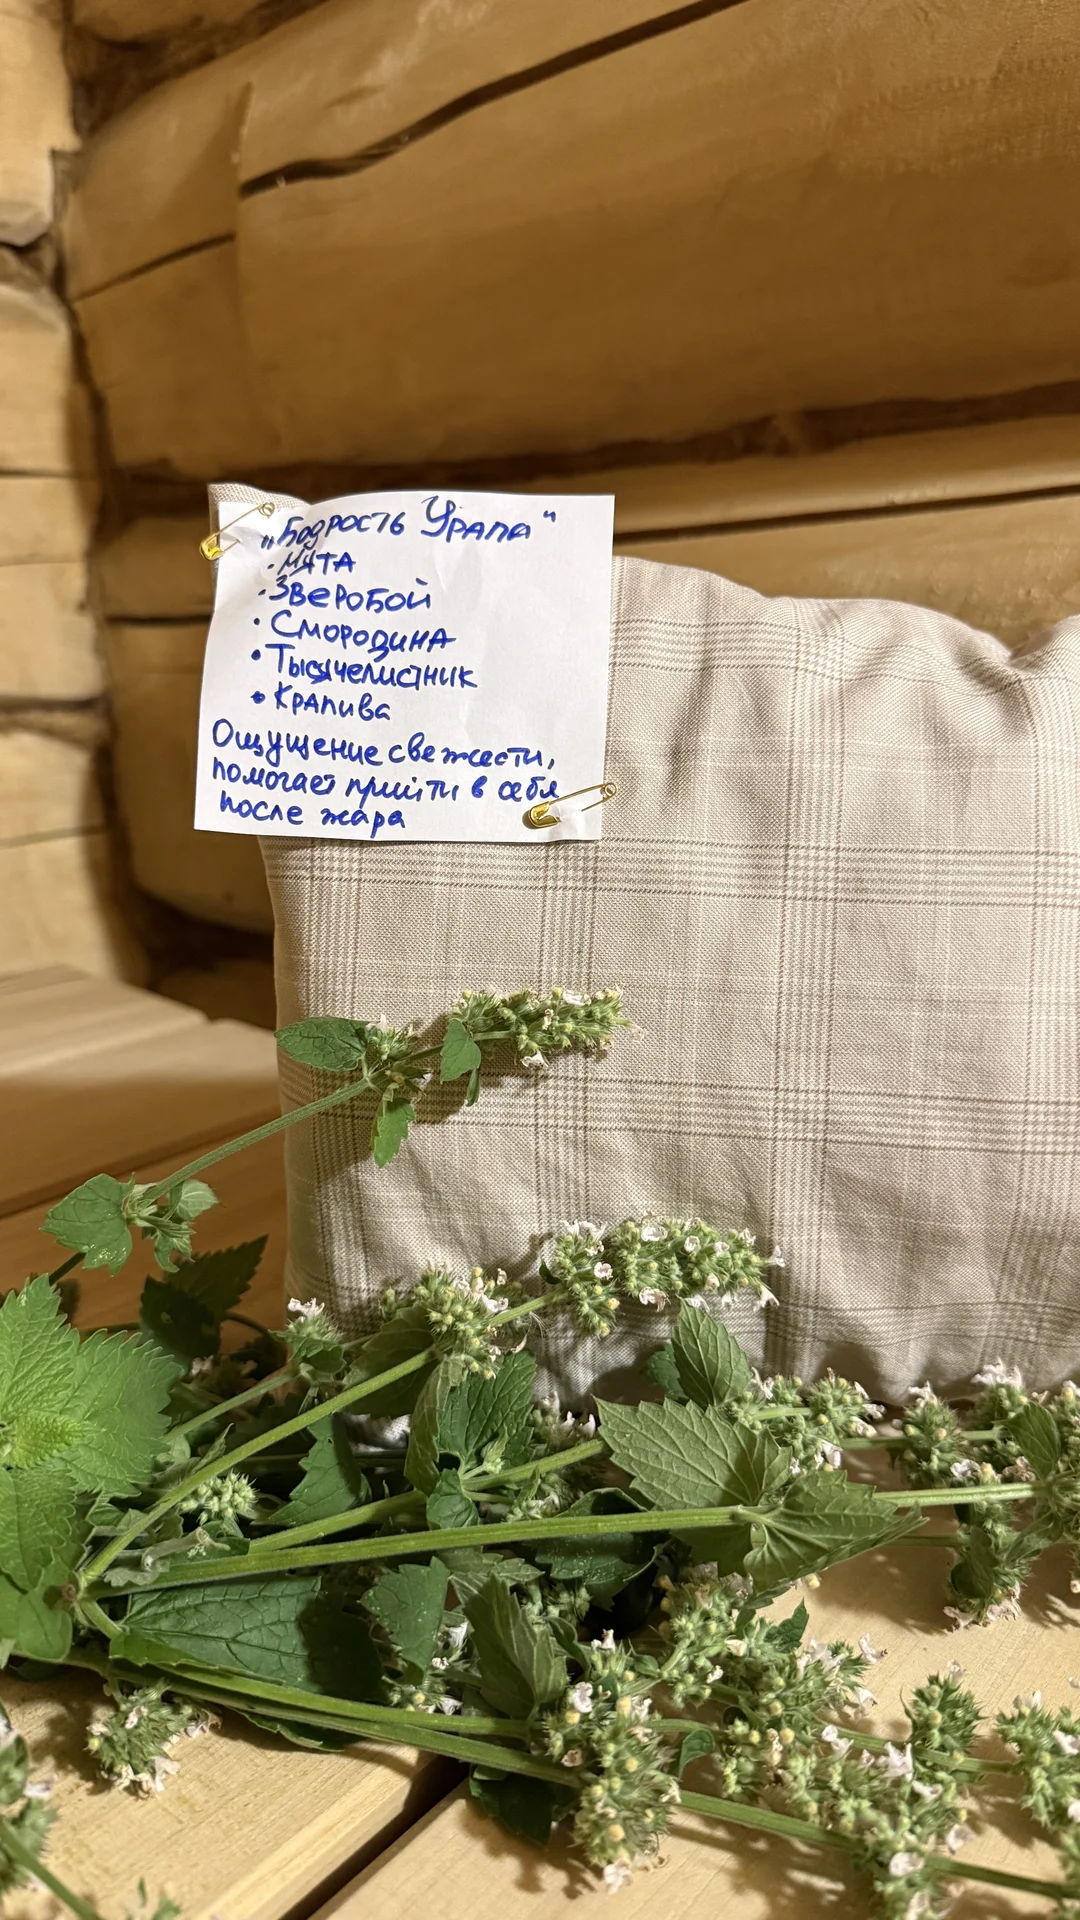 „Бодрость Урала"
• Мята
• Зверобой
• Смородина
• Тысячелистник
• Крапива
Ощущение свежести,
помогает прийти в себя
после жара